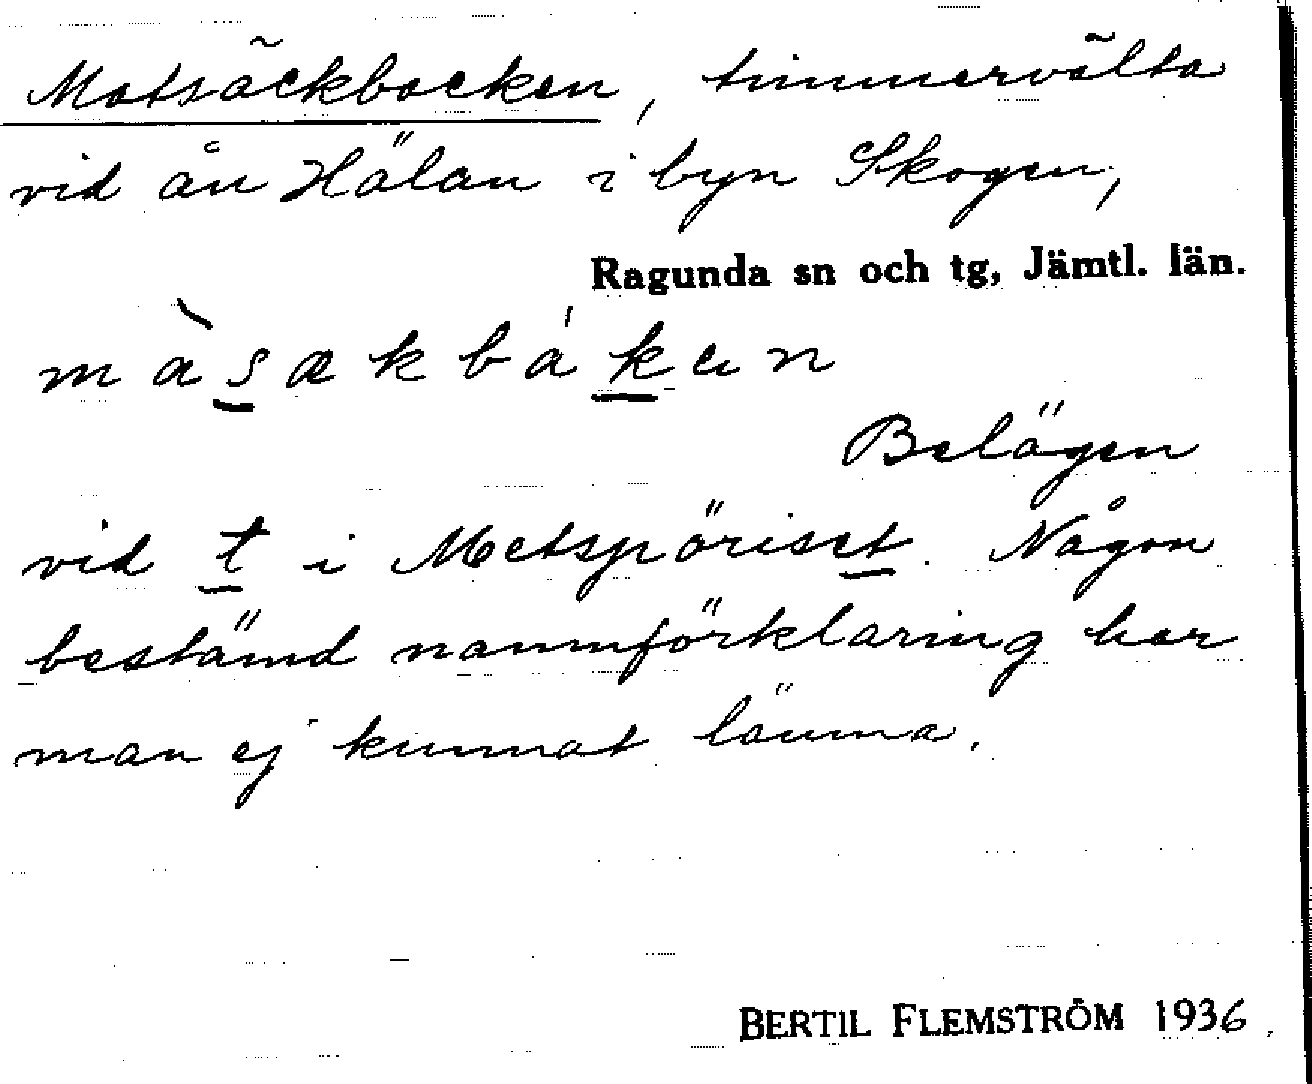 Matsäckbocken, timmervälta
vid ån Hälån i byn Skogen,
Ragunda sn och tg, Jämtl. län.
màsækbákən
Belägen
vid t i Metspöriset. Någon
bestämd namnförklaring har
man ej kunnat lämna.
BERTIL FLEMSTRÖM 1936.